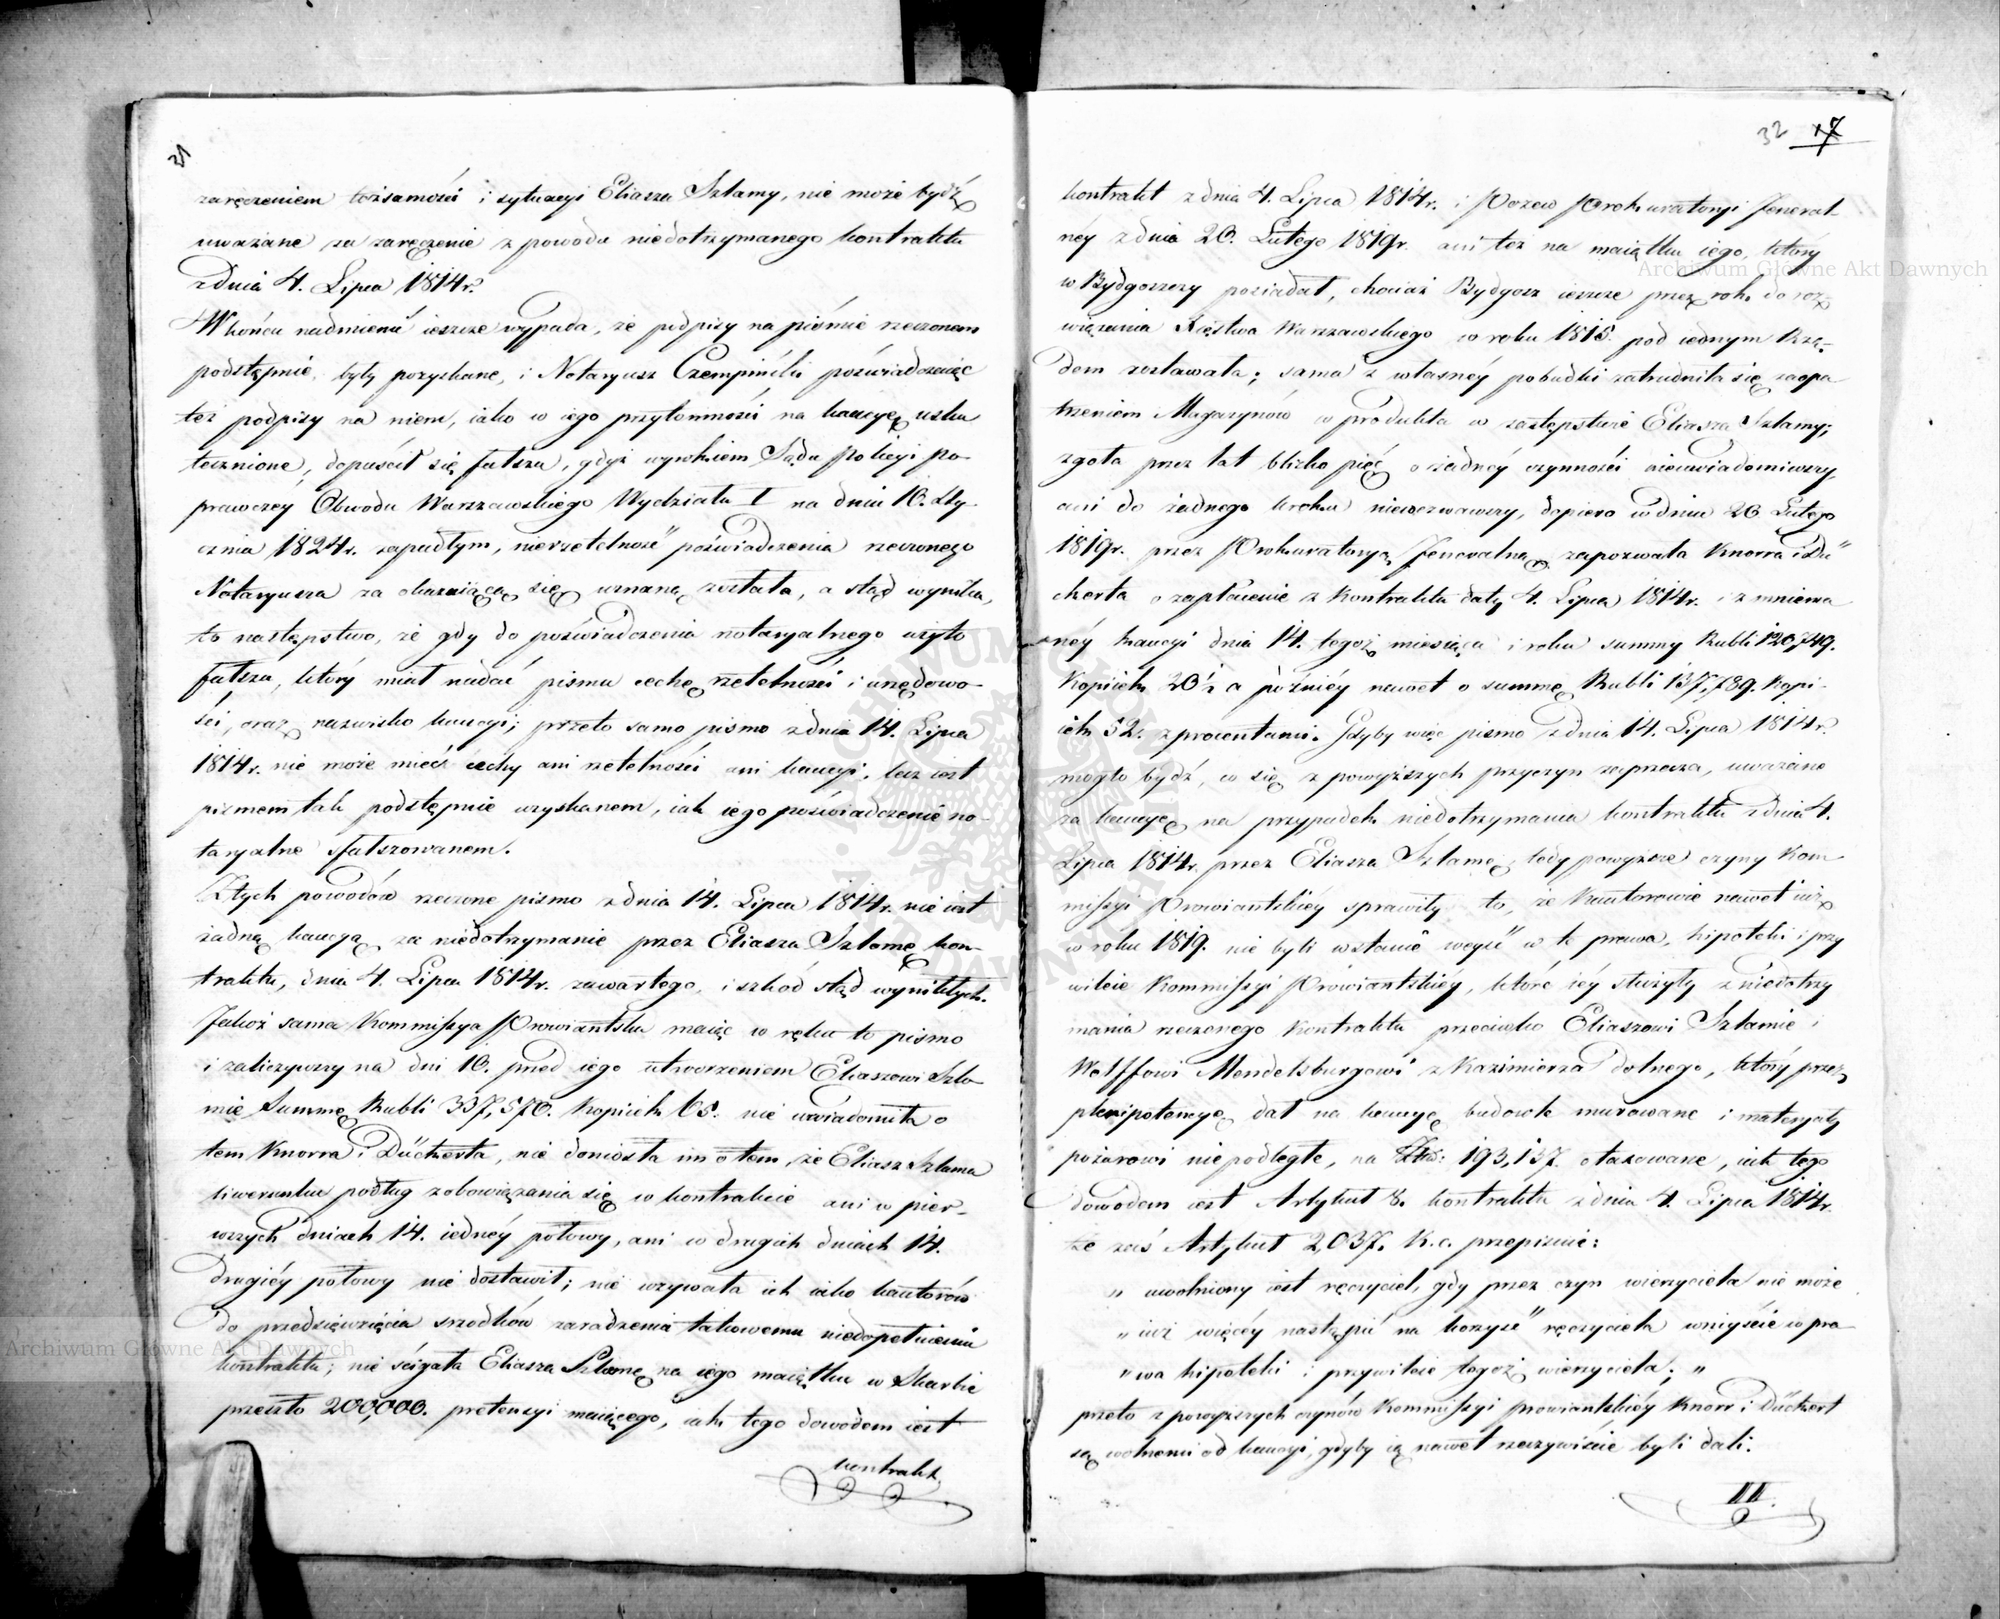 31
zaręczeniem tożsamości i sytuacyi Eliasza Szlamy, nie może bydź
uważane za zaręczenie z powodu niedotrzymanego kontraktu
z dnia 4. Lipca 1814r.
W końcu nadmienić ieszcze wypada, że podpisy na piśmie rzeczonem
podstępnie, były pozyskane, i Notaryusz Czempiński poświadczaiąc
też podpisy na niem, iako w iego przytomności na kaucyę usku
tecznione, dopuścił się fałszu, gdyż wyrokiem Sądu Policyi Po-
prawczey Obwodu Warszawskiego Wydziału I na dniu 10. Sty-
cznia 1824r. zapadłym, nierzetelność poświadczenia rzeczonego
Notaryusza za okazuiącą się uznaną została, a stąd wynika,
to następstwo, że gdy do poświadczenia notaryalnego użyto
fałszu, który miał nadać pismu cechę rzetelności i urzędowo-
ści, oraz nazwisko kaucyi; przeto samo pismo z dnia 14. Lipca
1814r. nie może mieć cechy ani rzetelności ani kaucyi, lecz iest
pismem tak podstępnie uzyskanem, iak iego poświadczenie no-
taryalne sfałszowanem.
Z tych powodów rzeczone pismo z dnia 14. Lipca 1814r. nie iest
żadną kaucyą za niedotrzymanie przez Eliasza Szlamę kon-
traktu, dnia 4. Lipca 1814r. zawartego, i szkód stąd wynikłych.
Jakoż sama Kommissya Prowiantska maiąc w ręku to pismo
i zaliczywszy na dni 10. przed iego utworzeniem Eliaszowi Szla-
mie Summę Rubli 337,570. Kopiiek 65. nie uwiadomiła o
tem Knorra i Dückerta, nie doniosła im o tem, że Eliasz Szlama
liwerunku podług zobowiązania się w kontrakcie ani w pier-
wszych dniach 14. iednéy połowy, ani w drugich dniach 14.
drugiéy połowy nie dostawił; nie wzywała ich iako kautorów
do przedsięwzięcia srzodków zaradzenia takowemu niedopełnieniu
kontraktu; nie ścigała Eliasza Szlamę na iego maiątku w Skarbie
przeszło 200,000. pretensyi maiącego, iak tego dowodem iest
kontrakt
32 17
kontrakt z dnia 4. Lipca 1814r. i Pozew Prokuratoryi Jeneral-
ney z dnia 20. Lutego 1819r. ani też na maiątku iego, który
w Bydgoszczy posiadał, chociaż Bydgoszcz ieszcze przez rok do roz
wiązania Xięstwa Warszawskiego w roku 1815. pod iednym Rzą-
dem zostawała; sama z własnéy pobudki zatrudniła się zaopa
trzeniem Magazynów w produkta w zastępstwie Eliasza Szlamy;
zgoła przez lat blizko pięć o żadnéy czynności nieuwiadomiwszy,
ani do żadnego kroku niewezwawszy, dopiero w dniu 20 Lutego
1819r. przez Prokuratoryą Jeneralną zapozwała Knorra i Dü
ckerta o zapłacenie z Kontraktu daty 4. Lipca 1814r. i z mniema
néy kaucyi dnia 14. tegoż miesiąca i roku summy Rubli 120,749.
Kopiiek 20½ a późniéy nawet o summę Rubli 137,789. Kopi-
iek 52. z procentami. Gdyby więc pismo z dnia 14. Lipca 1814r.
mogło bydź, co się z powyższych przyczyn zaprzecza, uważane
za kaucyę na przypadek niedotrzymania kontraktu z dnia 4.
Lipca 1814r. przez Eliasza Szlamę, tedy powyższe czyny Kom
missyi Prowiantskiéy sprawiły to, że Kautorowie nawet iuż
w roku 1819. nie byli w stanie weyść w te prawa, hipoteki i przy
wileie Kommissyi Prowiantskiéy, które iéy służyły z niedotrzy
mania rzeczonego Kontraktu przeciwko Eliaszowi Szlamie i
Wolffowi Mendelsburgowi z Kazimierza dolnego, który przez
plenipotencyę dał na kaucyę budowle murowane i materyały
pożarowi niepodległe, na Złp: 193,137. otaxowane, iak tego
dowodem iest Artykuł 8. kontraktu z dnia 4. Lipca 1814r.
że zaś Artykuł 2,037. K.c. przepisuie:
„ uwolniony iest ręczyciel, gdy przez czyn wierzyciela nie może
„ iuż więcéy nastąpić na korzyść ręczyciela wniyście w pra
„ wa hipoteki i przywileie tegoż wierzyciela; „
przeto z powyższych czynów Kommissyi prowiantskiéy Knorr i Dückert
są wolnemi od kaucyi, gdyby ią nawet rzeczywiście byli dali.
II.
Archiwum Główne Akt Dawnych
Archiwum Główne Akt Dawnych